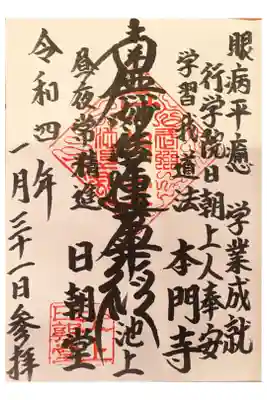 眼病平癒 学業成就
行学院日朝上人奉安
学習我道法
南無妙法蓮華経
昼夜常精進
池上
本門寺
日朝堂
令和四年
一月三十一日参拝